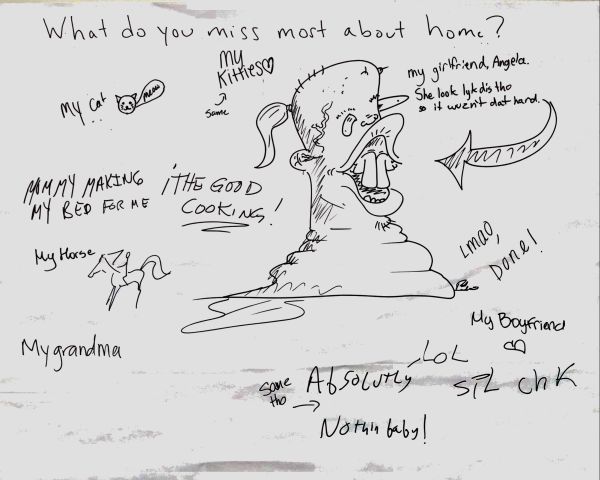 What do you miss most about home?
My
Kitties
Same
my girlfriend, Angela.
She look lyk dis tho
so it wuzn't dat hard.
My cat
meow
MAMMY MAKING
MY BED FOR ME
THE GOOD
COOKING!
My Horse
Lmao,
Done!
My Boyfriend
My grandma
LOL
same
tho
Absolutly
Nothin baby!